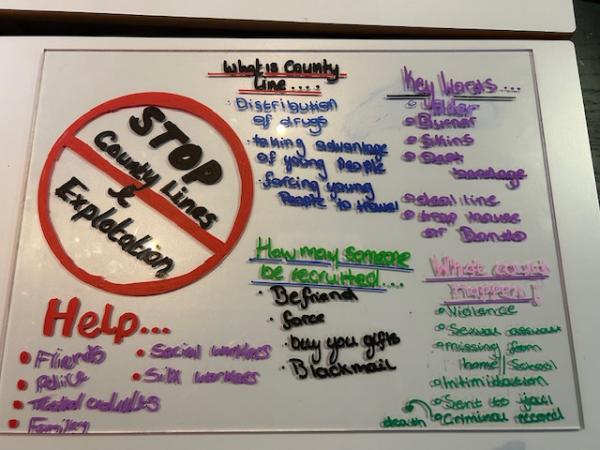 STOP
County Lines
&
Explotation
What is County
Line....
Distribution
of drugs
taking advantage
of young People
forcing young
People to travel
Key Words...
Elder
Burner
Skins
Debt
bondage
deal line
trap house
or Bando
How may someone
be recruited....
Befriend
force
buy you gifts
Blackmail
What could
Happen!
Violence
Sexual assault
missing from
home/School
Intimidation
Sent to jail
Criminal record
death
Help...
Friends
Police
Trusted adults
Families
Social workers
Silx workers